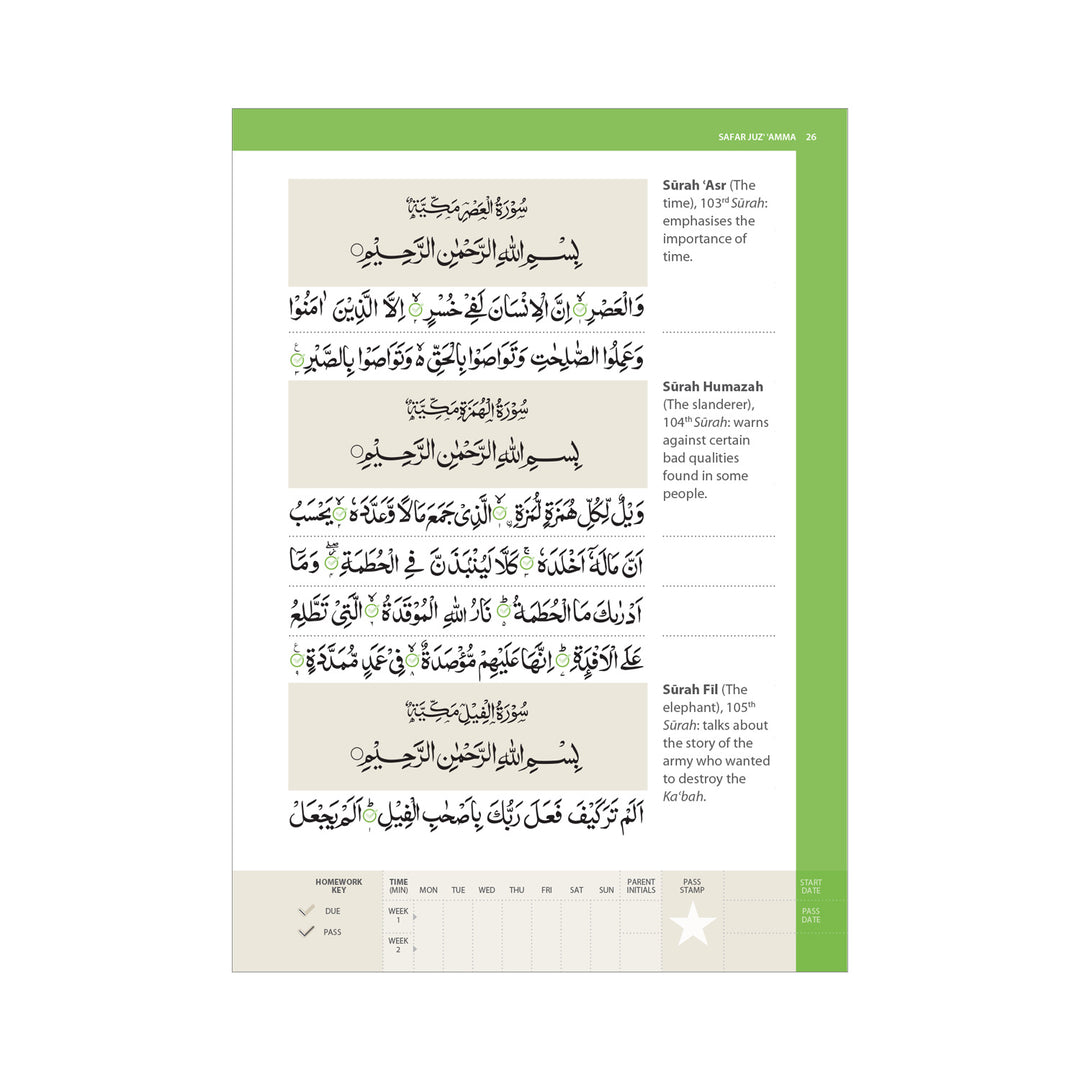 SAFAR JUZ' 'AMMA 26
سُوْرَةُ الْعَصْرِ مَكِّيَّةٌ
بِسْمِ اللّٰهِ الرَّحْمٰنِ الرَّحِيْمِ
وَالْعَصْرِ اِنَّ الْاِنْسَانَ لَفِيْ خُسْرٍ اِلَّا الَّذِيْنَ اٰمَنُوْا
وَعَمِلُوا الصّٰلِحٰتِ وَتَوَاصَوْا بِالْحَقِّ ەۙ وَتَوَاصَوْا بِالصَّبْرِ
Sūrah ‘Asr (The
time), 103rd Sūrah:
emphasises the
importance of
time.
سُوْرَةُ الْهُمَزَةِ مَكِّيَّةٌ
بِسْمِ اللّٰهِ الرَّحْمٰنِ الرَّحِيْمِ
وَيْلٌ لِّكُلِّ هُمَزَةٍ لُّمَزَةِ ۣ الَّذِيْ جَمَعَ مَالًا وَّعَدَّدَهٗ يَحْسَبُ
اَنَّ مَالَهٗٓ اَخْلَدَهٗ كَلَّا لَيُنْۢبَذَنَّ فِي الْحُطَمَةِ وَمَآ
اَدْرٰىكَ مَا الْحُطَمَةُ نَارُ اللّٰهِ الْمُوْقَدَةُ الَّتِيْ تَطَّلِعُ
عَلَى الْاَفْـِٕدَةِ اِنَّهَا عَلَيْهِمْ مُّؤْصَدَةٌ فِيْ عَمَدٍ مُّمَدَّدَةٍ
Sūrah Humazah
(The slanderer),
104th Sūrah: warns
against certain
bad qualities
found in some
people.
سُوْرَةُ الْفِيْلِ مَكِّيَّةٌ
بِسْمِ اللّٰهِ الرَّحْمٰنِ الرَّحِيْمِ
اَلَمْ تَرَ كَيْفَ فَعَلَ رَبُّكَ بِاَصْحٰبِ الْفِيْلِ اَلَمْ يَجْعَلْ
Sūrah Fīl (The
elephant), 105th
Sūrah: talks about
the story of the
army who wanted
to destroy the
Ka‘bah.
HOMEWORK
KEY
DUE
PASS
TIME
(MIN) MON TUE WED THU FRI SAT SUN
PARENT
INITIALS
PASS
STAMP
START
DATE
WEEK
1
WEEK
2
PASS
DATE